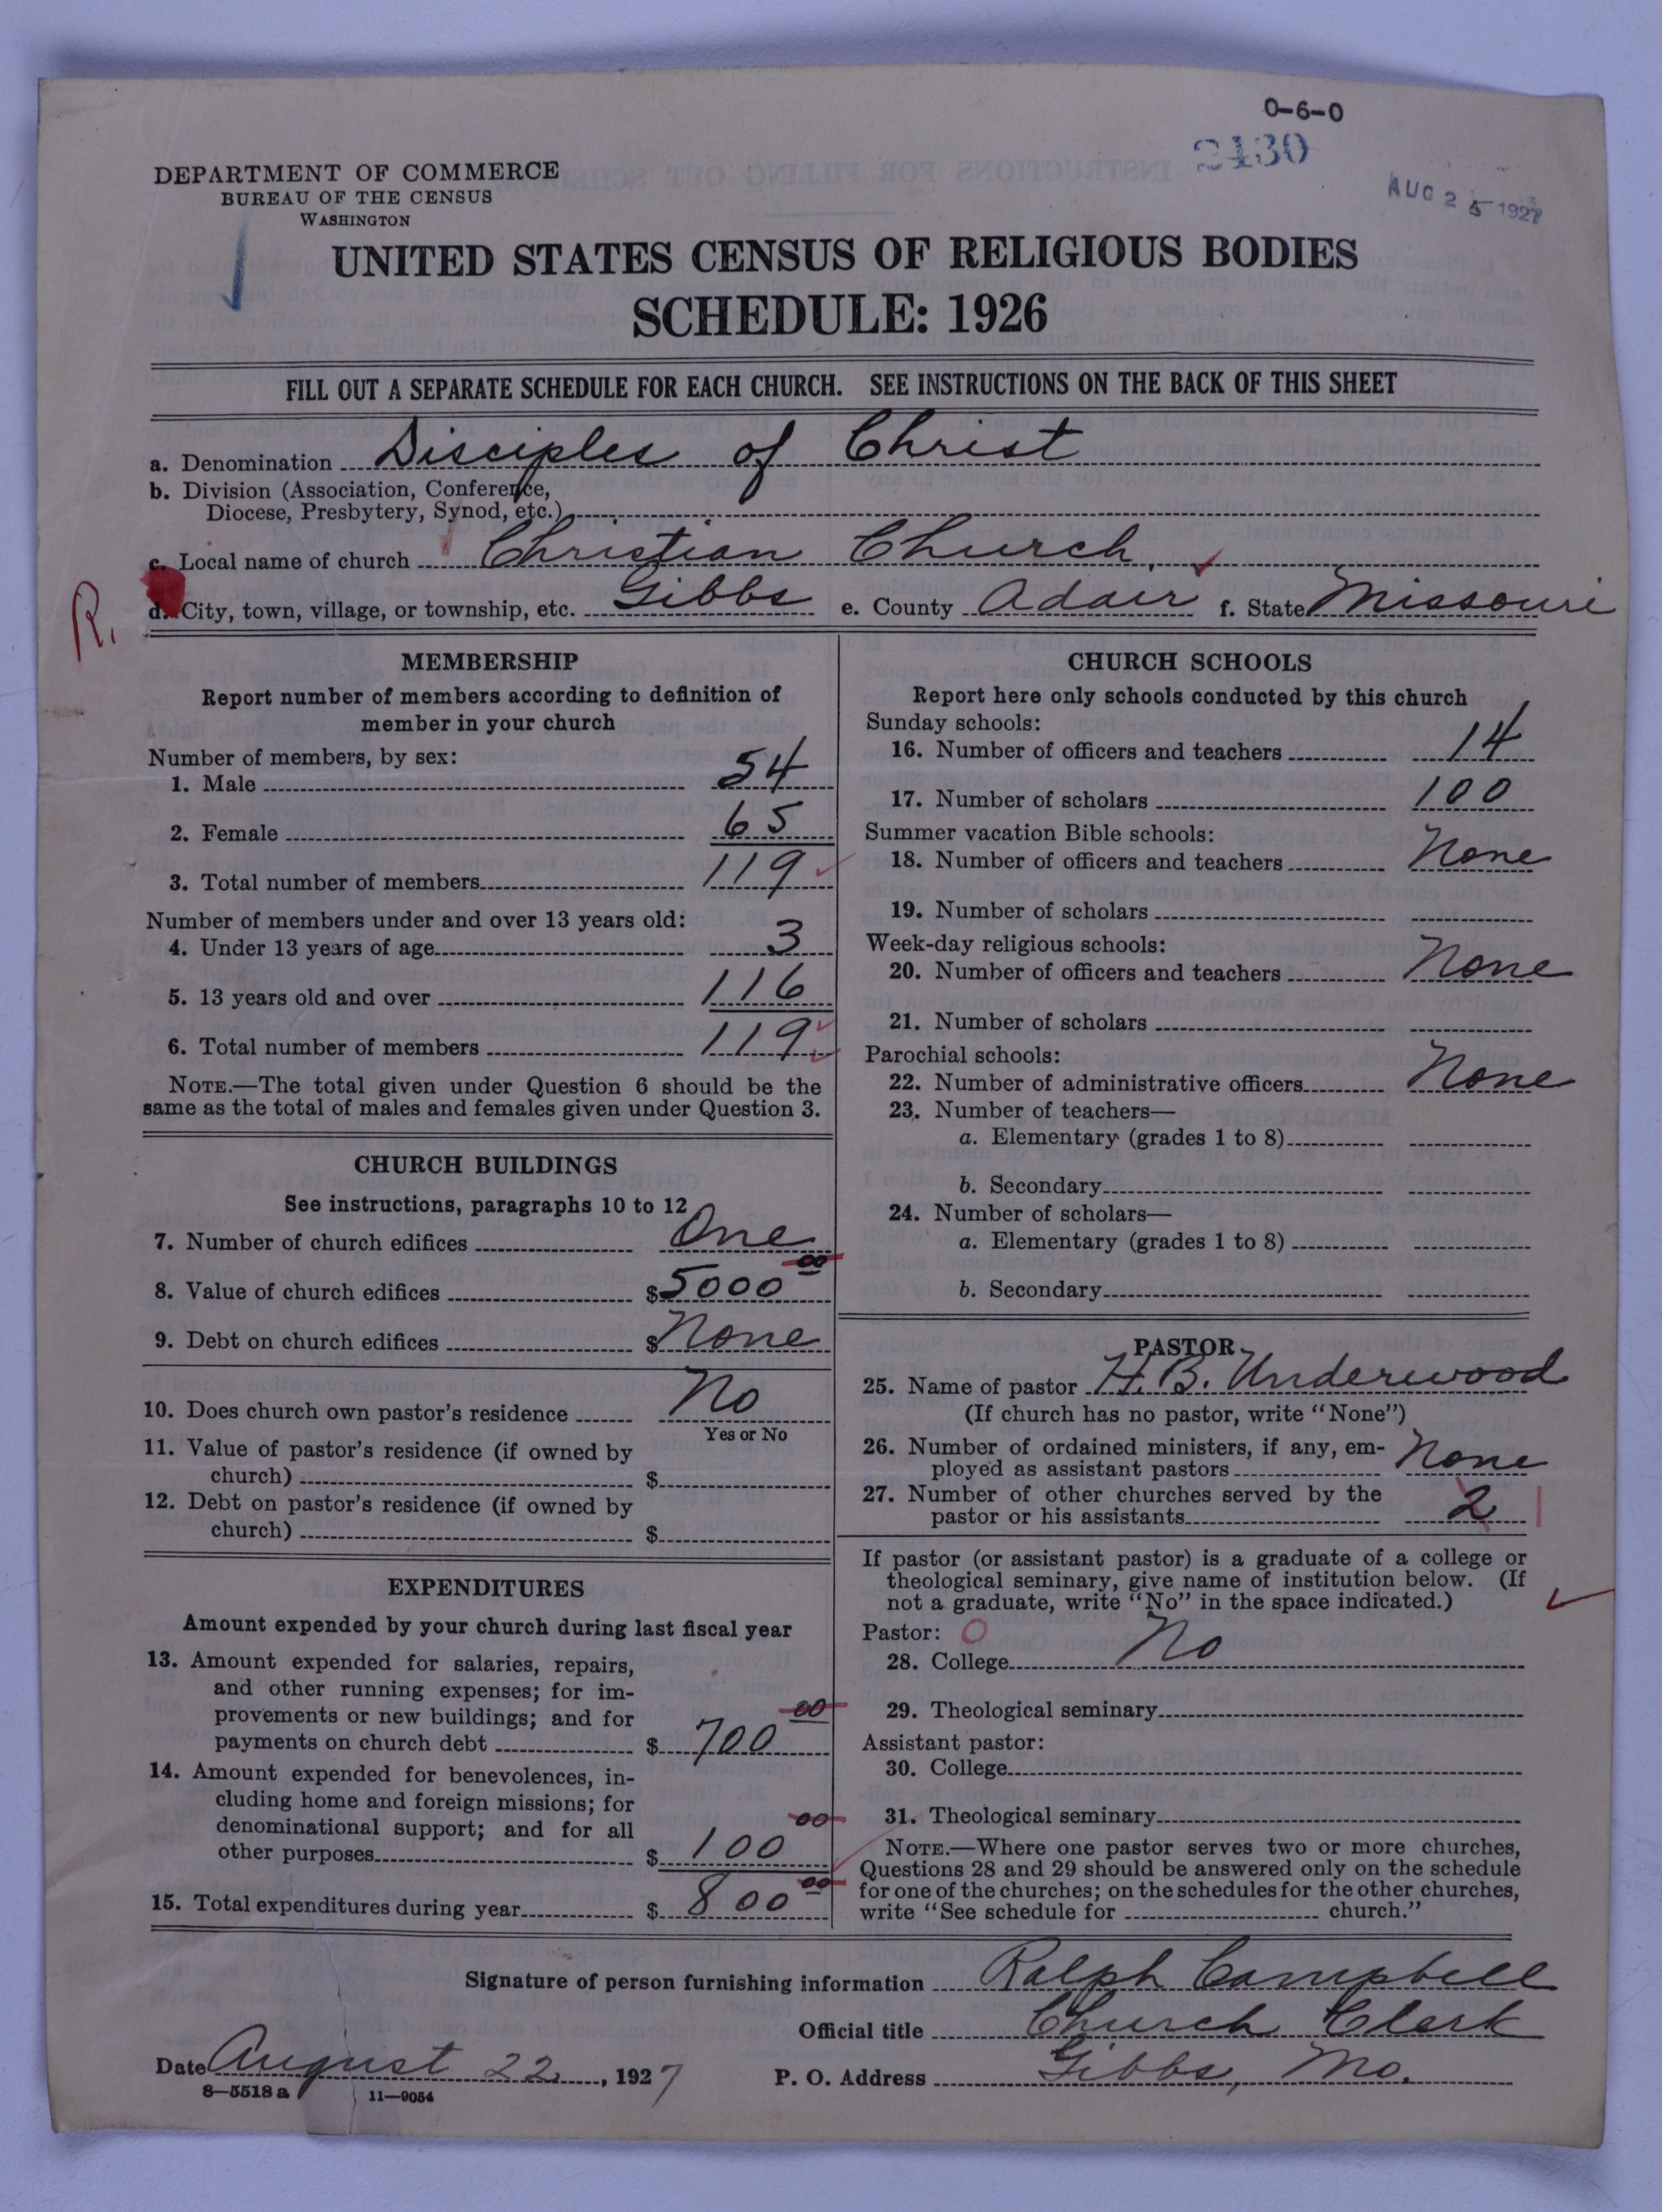 0-6-0
2430
AUG 25 1927
DEPARTMENT OF COMMERCE
BUREAU OF THE CENSUS
WASHINGTON
UNITED STATES CENSUS OF RELIGIOUS BODIES
SCHEDULE: 1926
FILL OUT A SEPARATE SCHEDULE FOR EACH CHURCH. SEE INSTRUCTIONS ON THE BACK OF THIS SHEET
a. Denomination Disciples of Christ
b. Division (Association, Conference,
Diocese, Presbytery, Synod, etc.)
c. Local name of church Christian Church.
R. d. City, town, village, or township, etc. Gibbs e. County Adair f. State Missouri
MEMBERSHIP
Report number of members according to definition of
member in your church
Number of members, by sex:
1. Male 54
2. Female 65
3. Total number of members 119
Number of members under and over 13 years old:
4. Under 13 years of age 3
5. 13 years old and over 116
6. Total number of members 119
NOTE.—The total given under Question 6 should be the
same as the total of males and females given under Question 3.
CHURCH BUILDINGS
See instructions, paragraphs 10 to 12
7. Number of church edifices One
8. Value of church edifices $5000 00
9. Debt on church edifices $None
10. Does church own pastor's residence No
Yes or No
11. Value of pastor's residence (if owned by
church) $
12. Debt on pastor's residence (if owned by
church) $
EXPENDITURES
Amount expended by your church during last fiscal year
13. Amount expended for salaries, repairs,
and other running expenses; for im-
provements or new buildings; and for
payments on church debt $ 700 00
14. Amount expended for benevolences, in-
cluding home and foreign missions; for
denominational support; and for all
other purposes $ 100 00
15. Total expenditures during year $ 800 00
CHURCH SCHOOLS
Report here only schools conducted by this church
Sunday schools:
16. Number of officers and teachers 14
17. Number of scholars 100
Summer vacation Bible schools:
18. Number of officers and teachers None
19. Number of scholars
Week-day religious schools:
20. Number of officers and teachers None
21. Number of scholars
Parochial schools:
22. Number of administrative officers None
23. Number of teachers—
a. Elementary (grades 1 to 8)
b. Secondary
24. Number of scholars—
a. Elementary (grades 1 to 8)
b. Secondary
PASTOR
25. Name of pastor H. B. Underwood
(If church has no pastor, write "None")
26. Number of ordained ministers, if any, em-
ployed as assistant pastors None
27. Number of other churches served by the
pastor or his assistants 2 1
If pastor (or assistant pastor) is a graduate of a college or
theological seminary, give name of institution below. (If
not a graduate, write "No" in the space indicated.)
Pastor: 0
28. College No
29. Theological seminary
Assistant pastor:
30. College
31. Theological seminary
NOTE.—Where one pastor serves two or more churches,
Questions 28 and 29 should be answered only on the schedule
for one of the churches; on the schedules for the other churches,
write "See schedule for church."
Signature of person furnishing information Ralph Campbell
Official title Church Clerk
Date August 22, 1927 P. O. Address Gibbs, Mo.
8—5518 a 11—9054